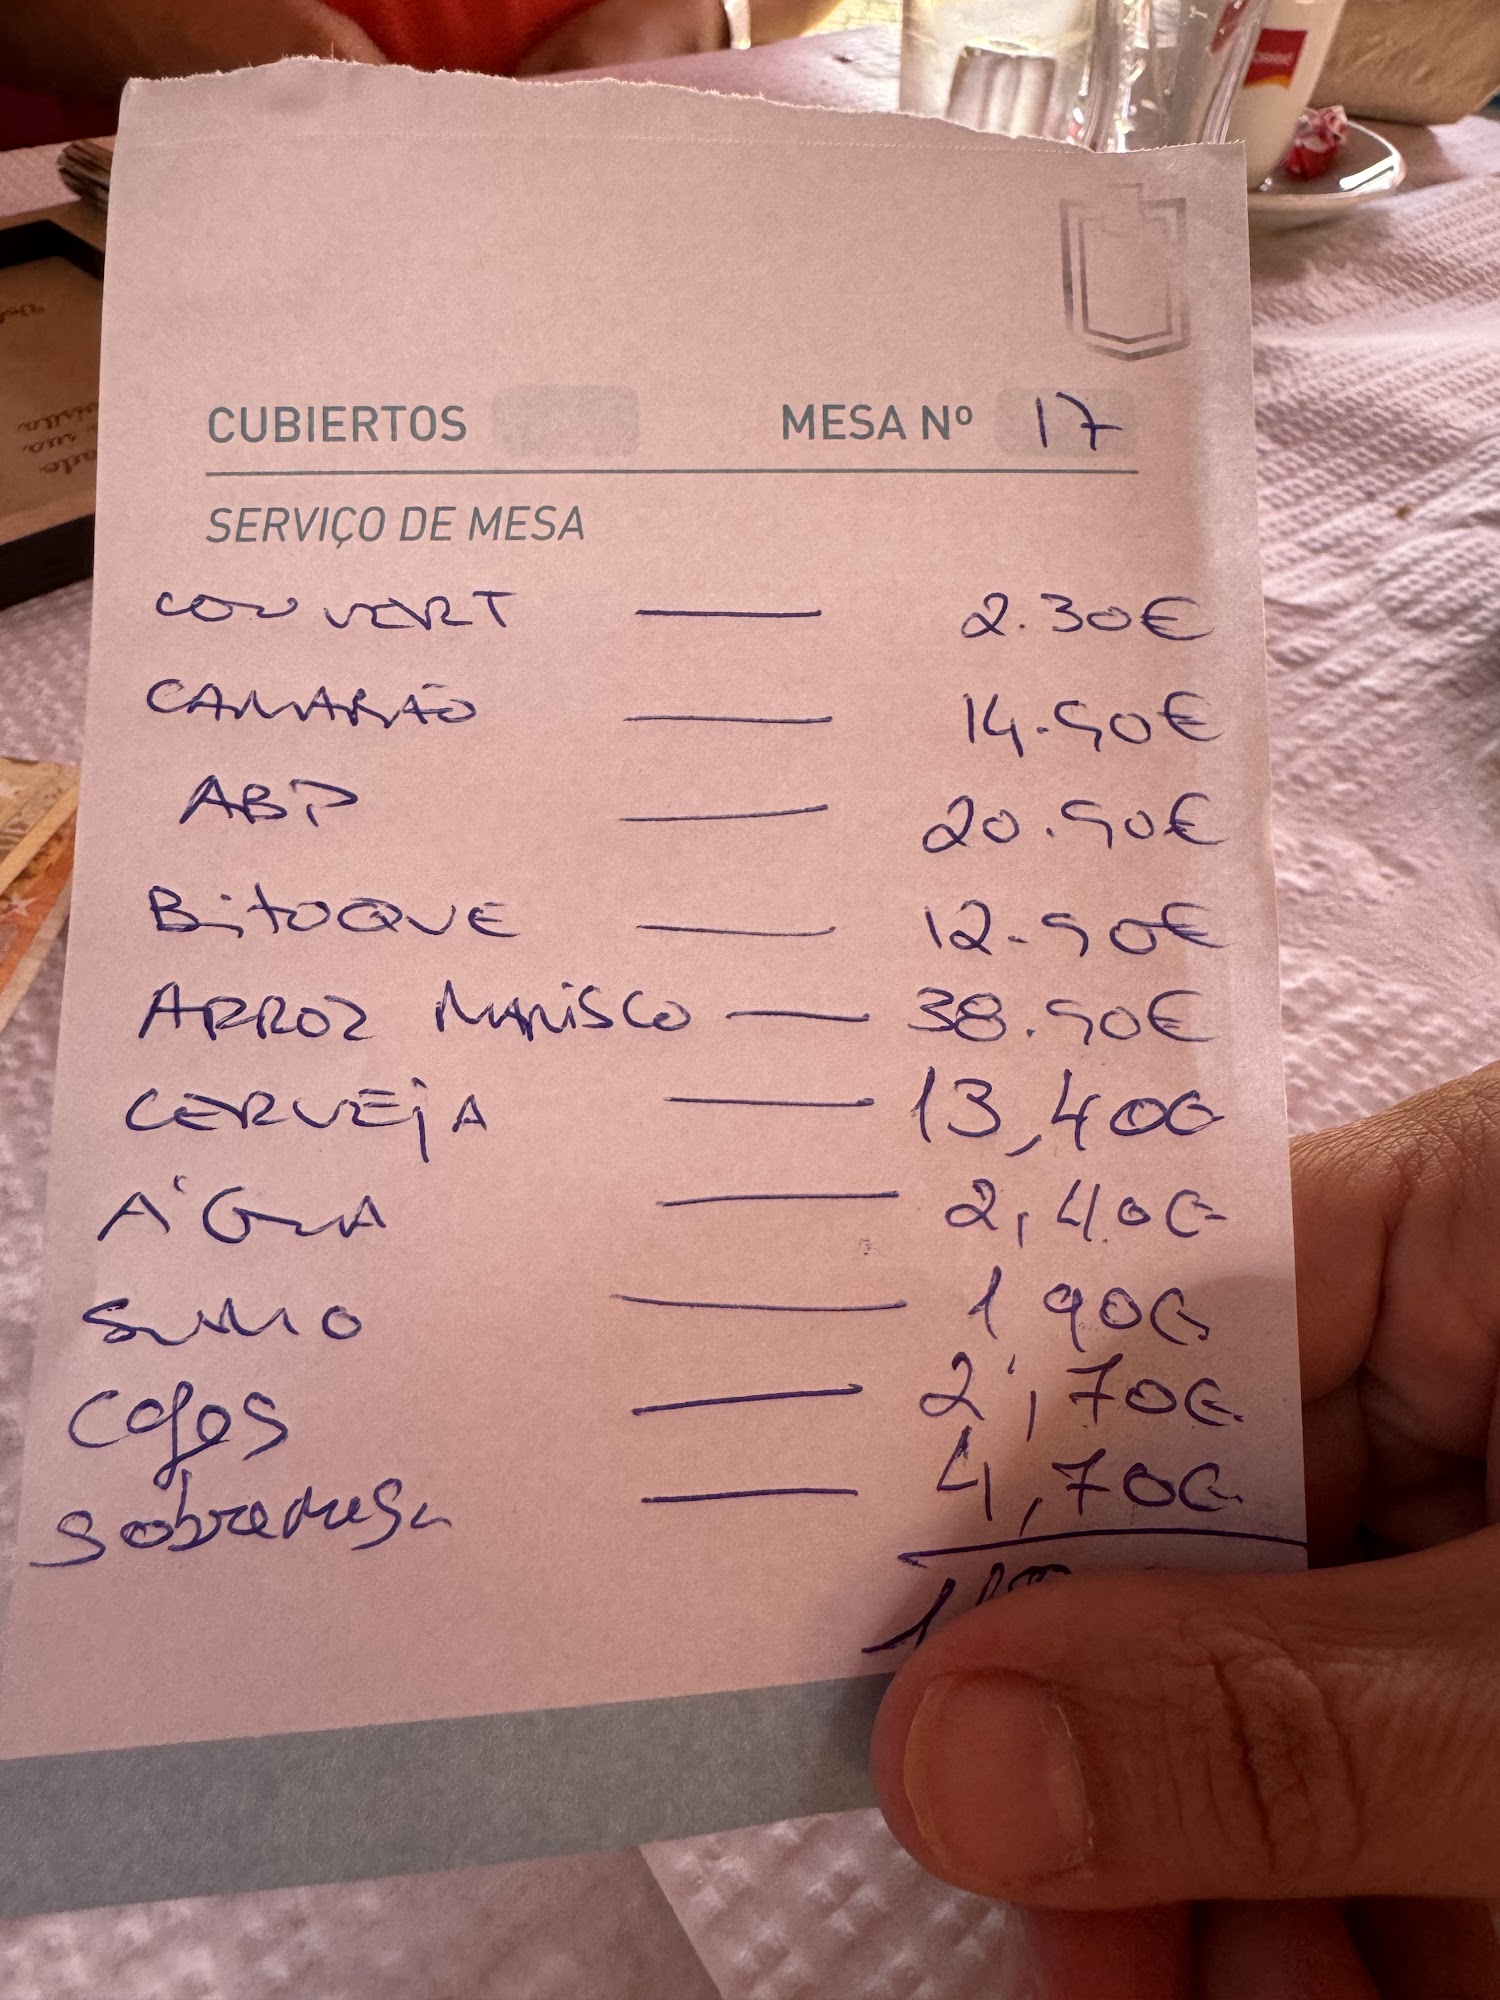 CUBIERTOS MESA Nº 17
SERVIÇO DE MESA
COUVERT — 2.30€
CAMARÃO — 14.90€
ABP — 20.90€
BitOQUE — 12.90€
ARROZ MARiSCO — 38.90€
CERVEjA — 13,40€
ÁGUA — 2,40€
SUMO — 1,90€
Cafes — 2,70€
Sobremesa — 4,70€